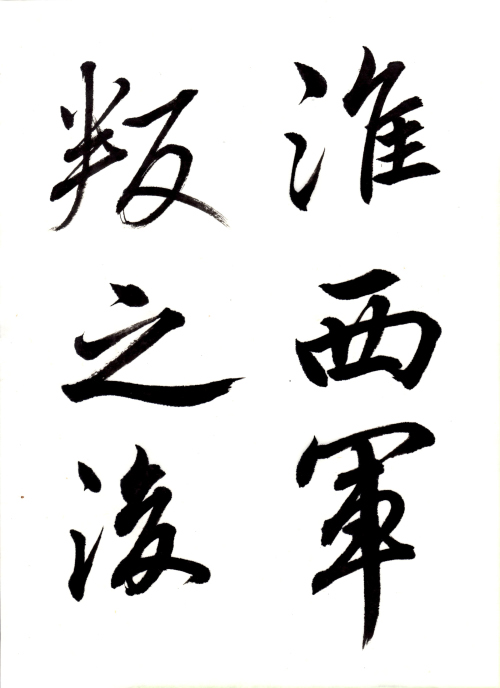 淮西軍
叛之後